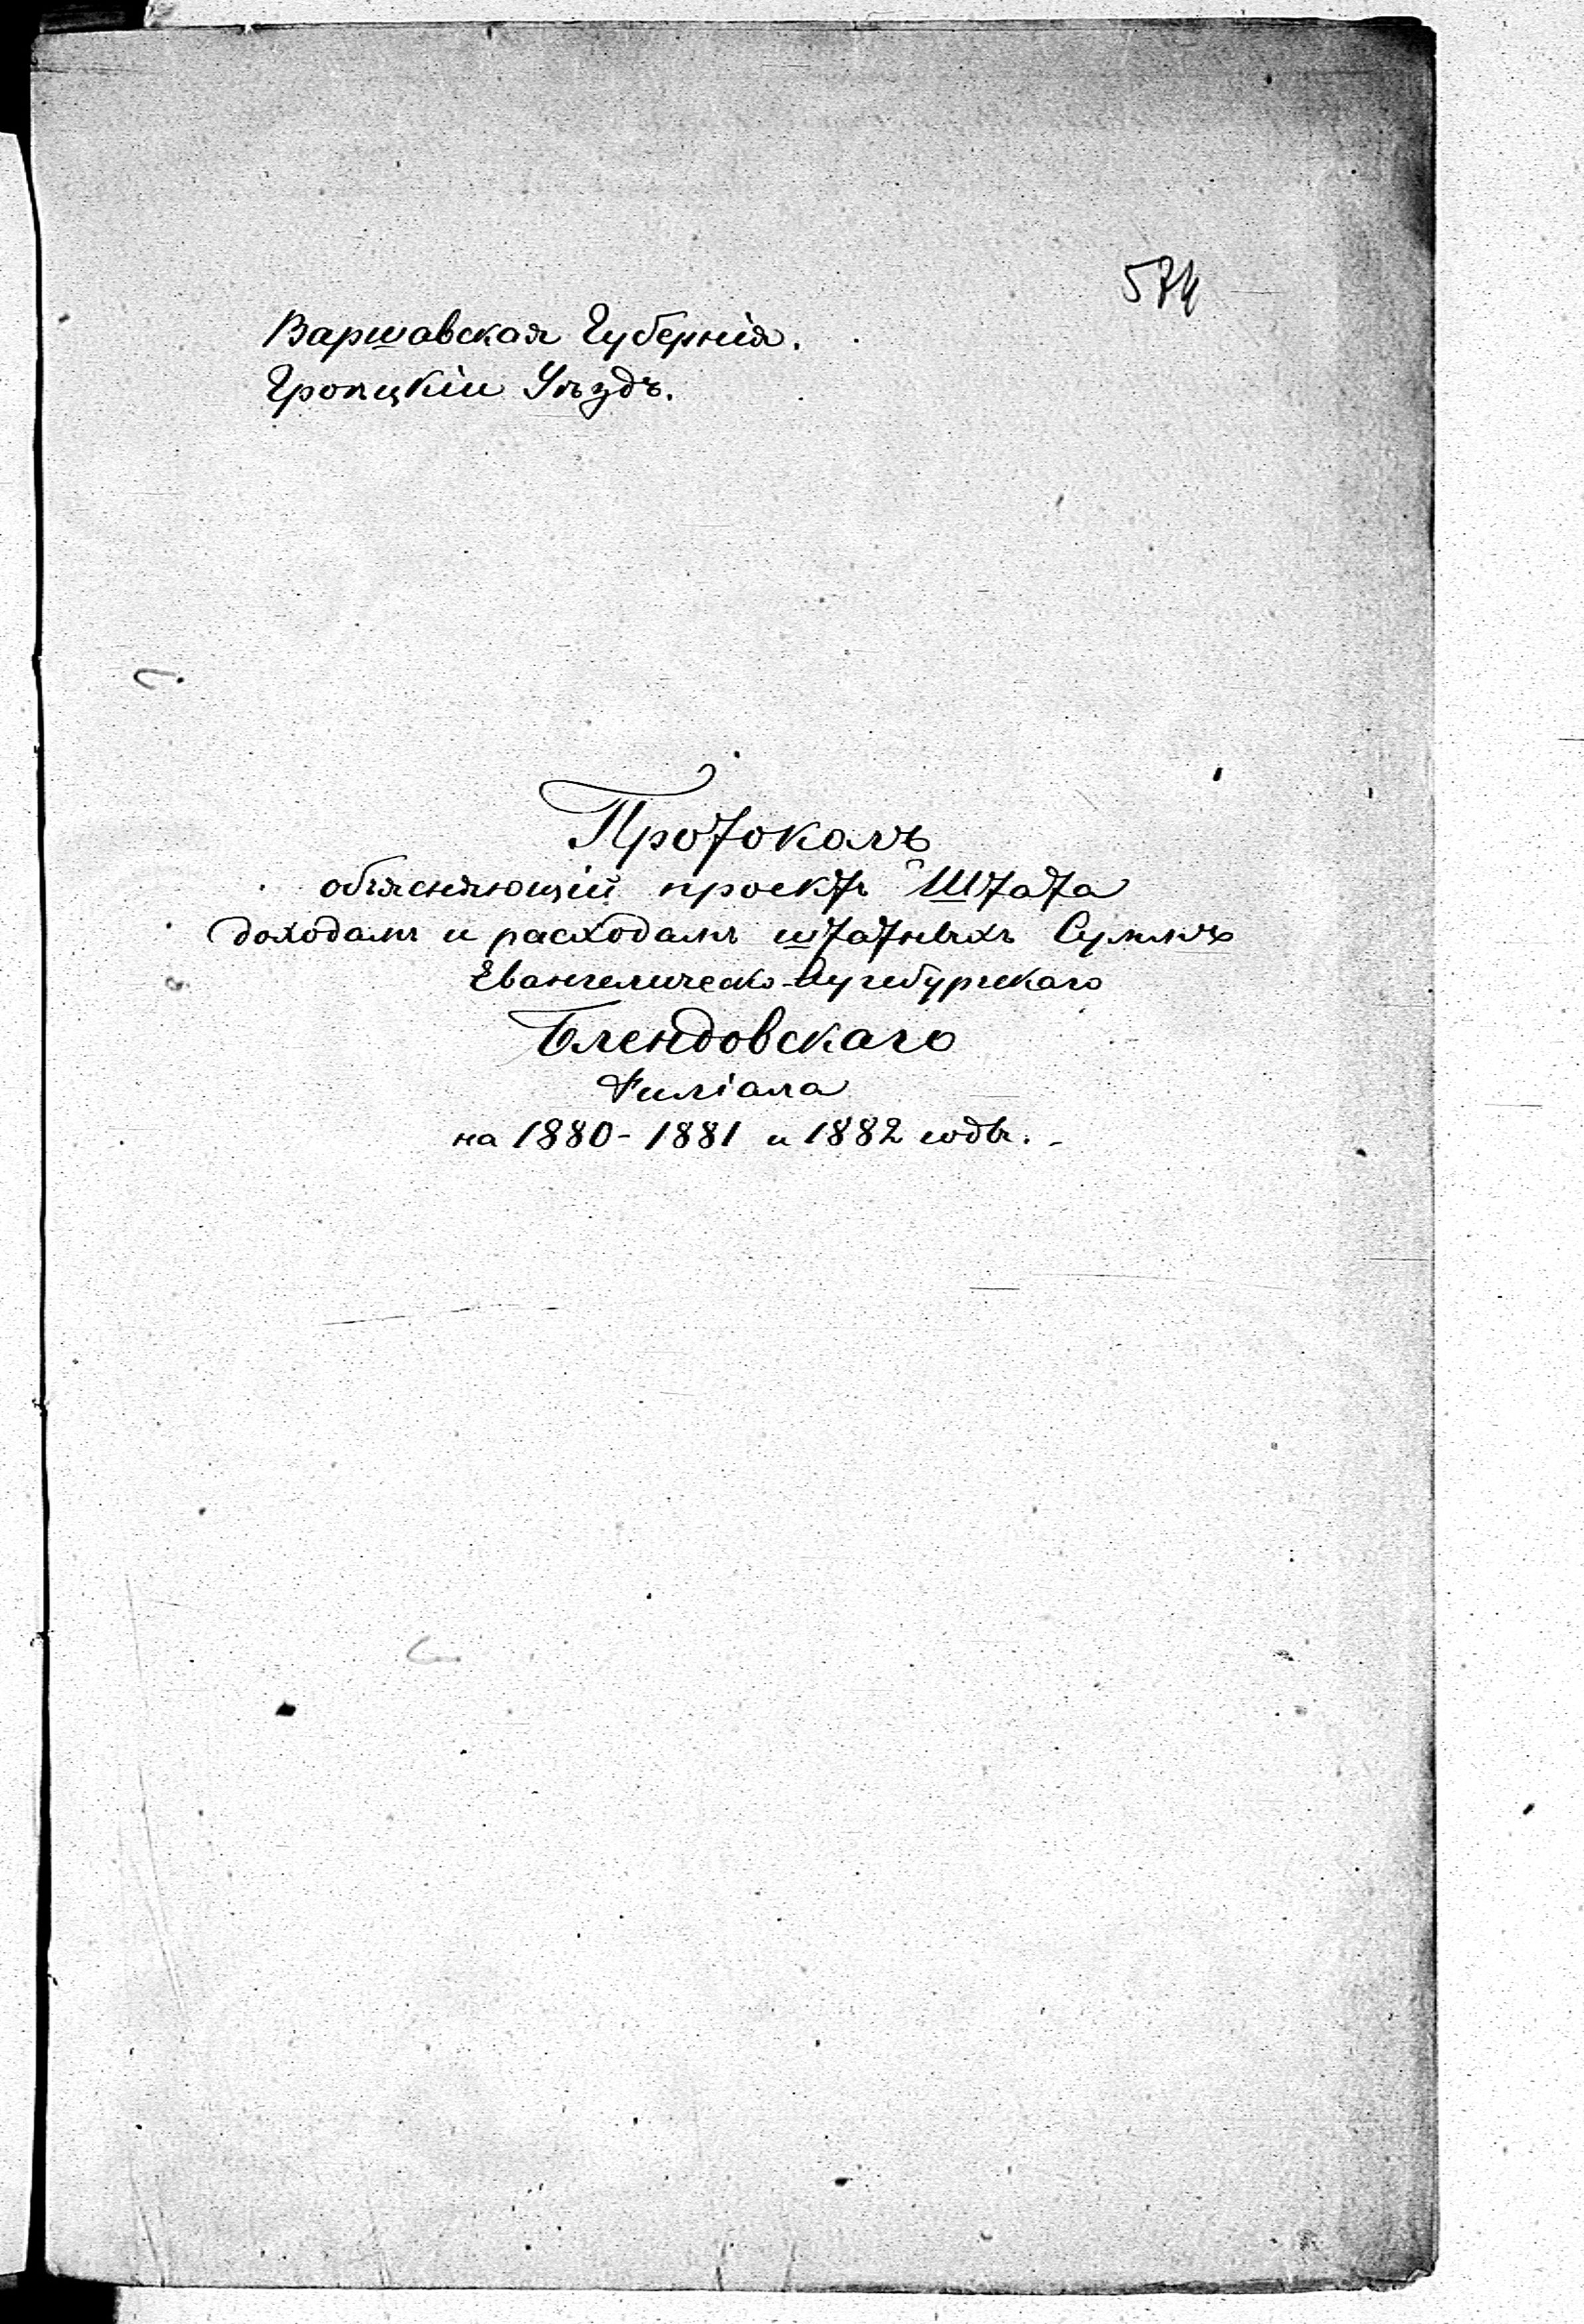 574
Варшавская Губернія.
Гроецкіи Уѣздъ.
Протоколъ
объясняющій проектъ Штата
доходамъ и расходамъ штатныхъ Суммъ
Евангелическо-Аугсбургскаго
Блендовскаго
Филіала
на 1880-1881 и 1882 годы.-